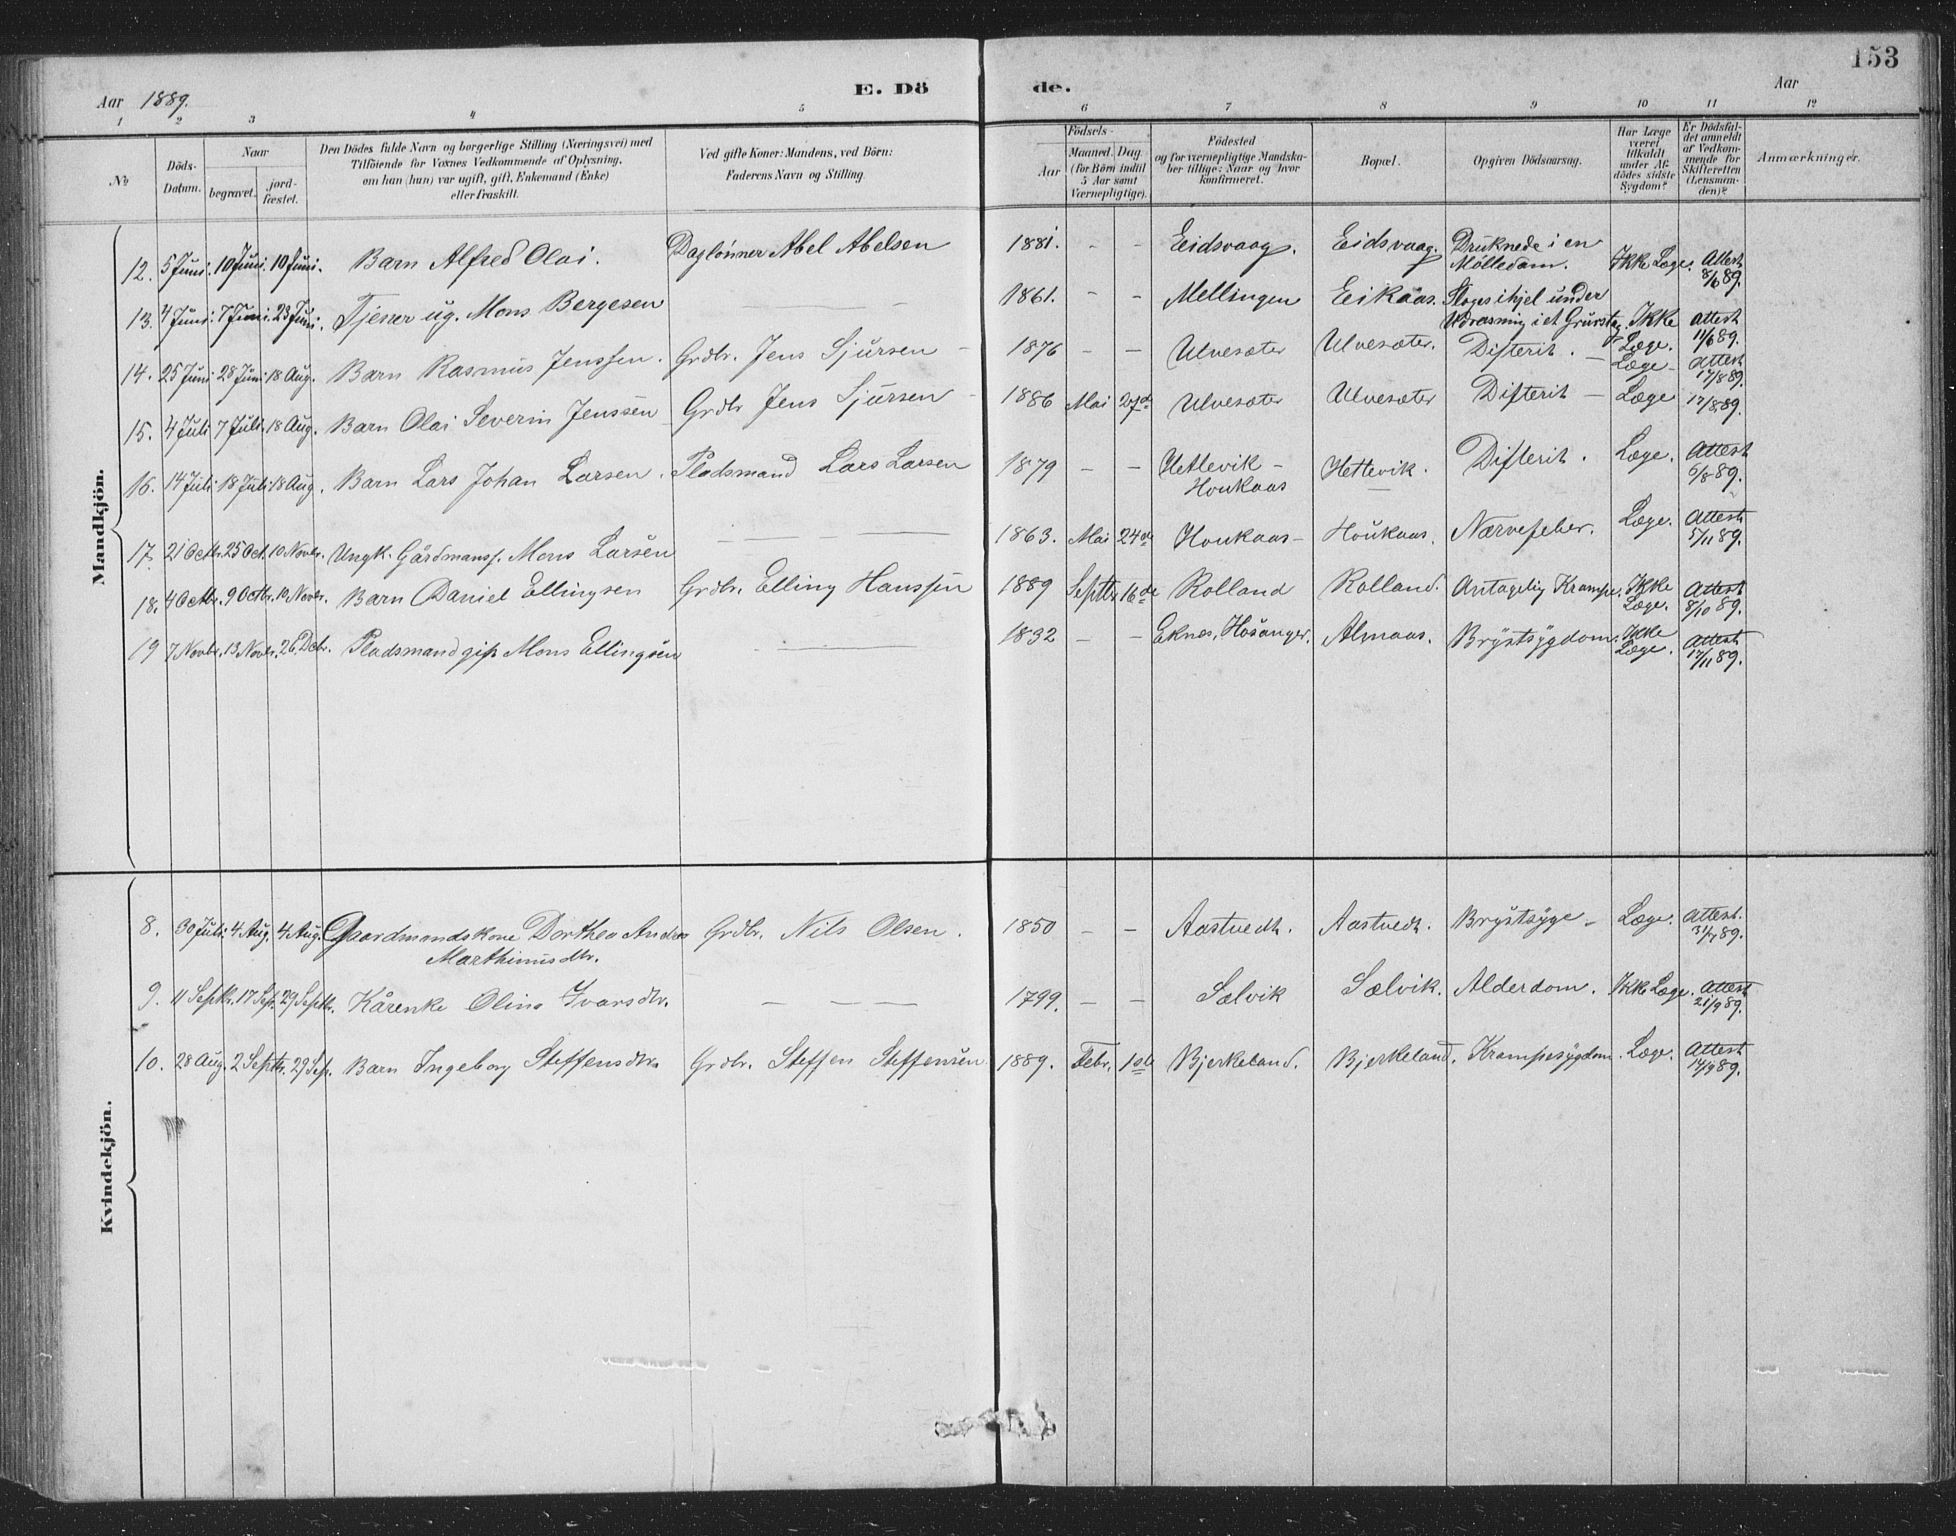 153
Aar 1889. E. Dö de. Aar
1 2 3 4 5 6 7 8 9 10 11 12
No
Döds-Datum.
Naar
begravet. jord-fæstet.
Den Dödes fulde Navn og borgerlige Stilling (Næringsvei) med
Tilföiende for Voxnes Vedkommende af Oplysning,
om han (hun) var ugift, gift, Enkemand (Enke)
eller fraskilt.
Ved gifte Koner: Mandens, ved Börn:
Faderens Navn og Stilling.
Födsels-
Aar
Maaned. Dag.
(for Börn indtil
5 Aar samt
Værnepligtige).
Födested
og for værnepligtige Mandska-
ber tillige: Naar og hvor
konfirmeret.
Bopæl.
Opgiven Dödsaarsag.
Har Læge
været
tilkaldt
under Af-
dödes sidste
Sygdom?
Er Dödsfal-
det anmeldt
af Vedkom-
mende for
Skifteretten
(Lensman-
den)?
Anmærkninger.
Mandkjön.
12. 5 Juni. 10 Juni. 10 Juni. Barn Alfred Olai. Daglønner Abel Abelsen 1881. – – Eidsvaag. Eidsvaag. Druknede i en Mølledam. Ikke Læge. Attest 8/6 89.
13. 4 Juni. 7 Juni. 23 Juni. Tjener ug. Mons Bergesen — — 1861. – – Mellingen Eikaas. Sloges ihjel under Udrasning i et Grustag. Ikke Læge. Attest 11/6 89.
14. 25 Juni 28 Juni 18 Aug. Barn Rasmus Jenssen. Grdbr. Jens Sjursen – 1876 – – Ulvesæter Ulvesæter. Difterit. – Læge – Attest 17/8 89.
15. 4 Juli 7 Juli. 18 Aug. Barn Olai Severin Jenssen Grdbr Jens Sjursen – 1886 Mai 27de Ulvesæter Ulvesæter Difterit – Læge 17/8 89.
16. 14 Juli 18 Juli 18 Aug. Barn Lars Johan Larsen. Pladsmand Lars Larsen 1879 – – Hetlevik – Houkaas Hetlevik. Difterit. Læge. Attest 6/8 89.
17. 21 Octbr. 25 Oct. 10 Novbr. Ungk. Gårdmanss. Mons Larsen — — — 1863. Mai 24de Houkaas – Houkaas. Nærvefeber. Læge. Attest 5/11 89.
18. 4 Octbr. 9 Octbr. 10 Novbr. Barn Daniel Ellingsen Grdbr. Elling Hanssen 1889 Septbr 16de Rolland Rolland. Antagelig Krampe. Ikke Læge. Attest 8/10 89.
19 7 Novbr. 13 Novbr. 26 Dcbr. Pladsmand gift Mons Ellingsen — — 1832 – – Eknes, Hosanger. Almaas. Brystsygdom. Ikke Læge. Attest 17/11 89.
Kvindekjön.
8. 30 Juli. 4 Aug. 4 Aug. Gaardmandskone Dorthea Andrea Marthinusdtr. Grdbr. Nils Olsen. 1850 – – Aastvedt. Aastvedt. Brystsyge – Læge. Attest. 31/7 89.
9. 11 Septbr. 17 Sep. 29 Septbr. Kårenke Olina Ivarsdtr. — — — 1799. – – Sælvik Sælvik. Alderdom. Ikke Læge. Attest 21/9 89.
10. 28 Aug. 2 Septbr. 29 Sep. Barn Ingeborg Steffensdtr. Grdbr. Steffen Steffensen 1889. Febr. 1ste Bjerkeland. Bjerkeland. Krampesygdom. Læge. Attest 14/9 89.